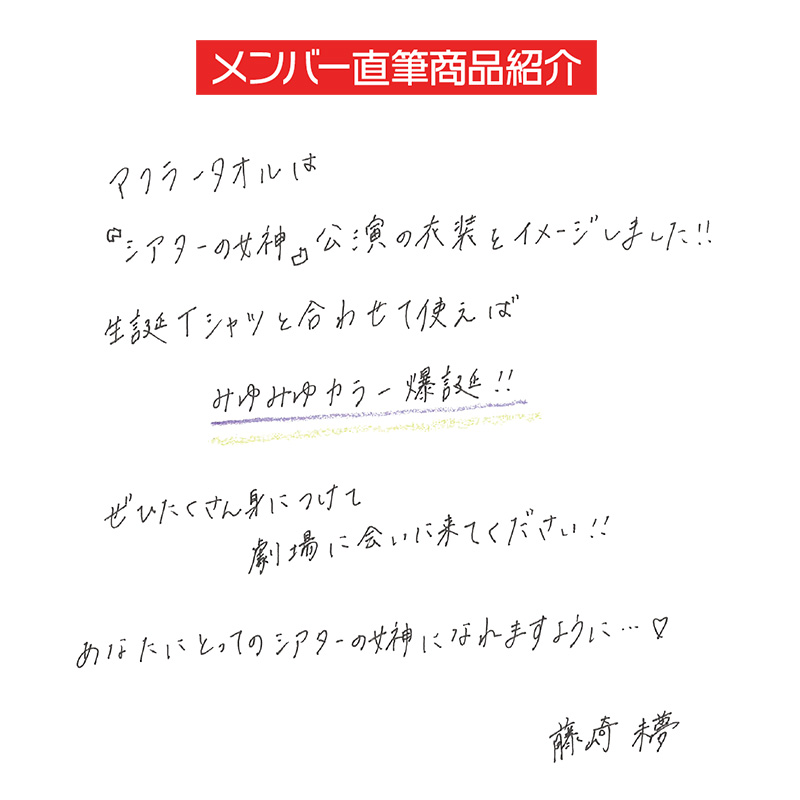 メンバー直筆商品紹介
マフラータオルは
『シアターの女神』公演の衣装をイメージしました!!
生誕Tシャツと合わせて使えば
みゆみゆカラー爆誕!!
ぜひたくさん身につけて
劇場に会いに来てください!!
あなたにとってのシアターの女神になれますように…♡
藤崎未夢